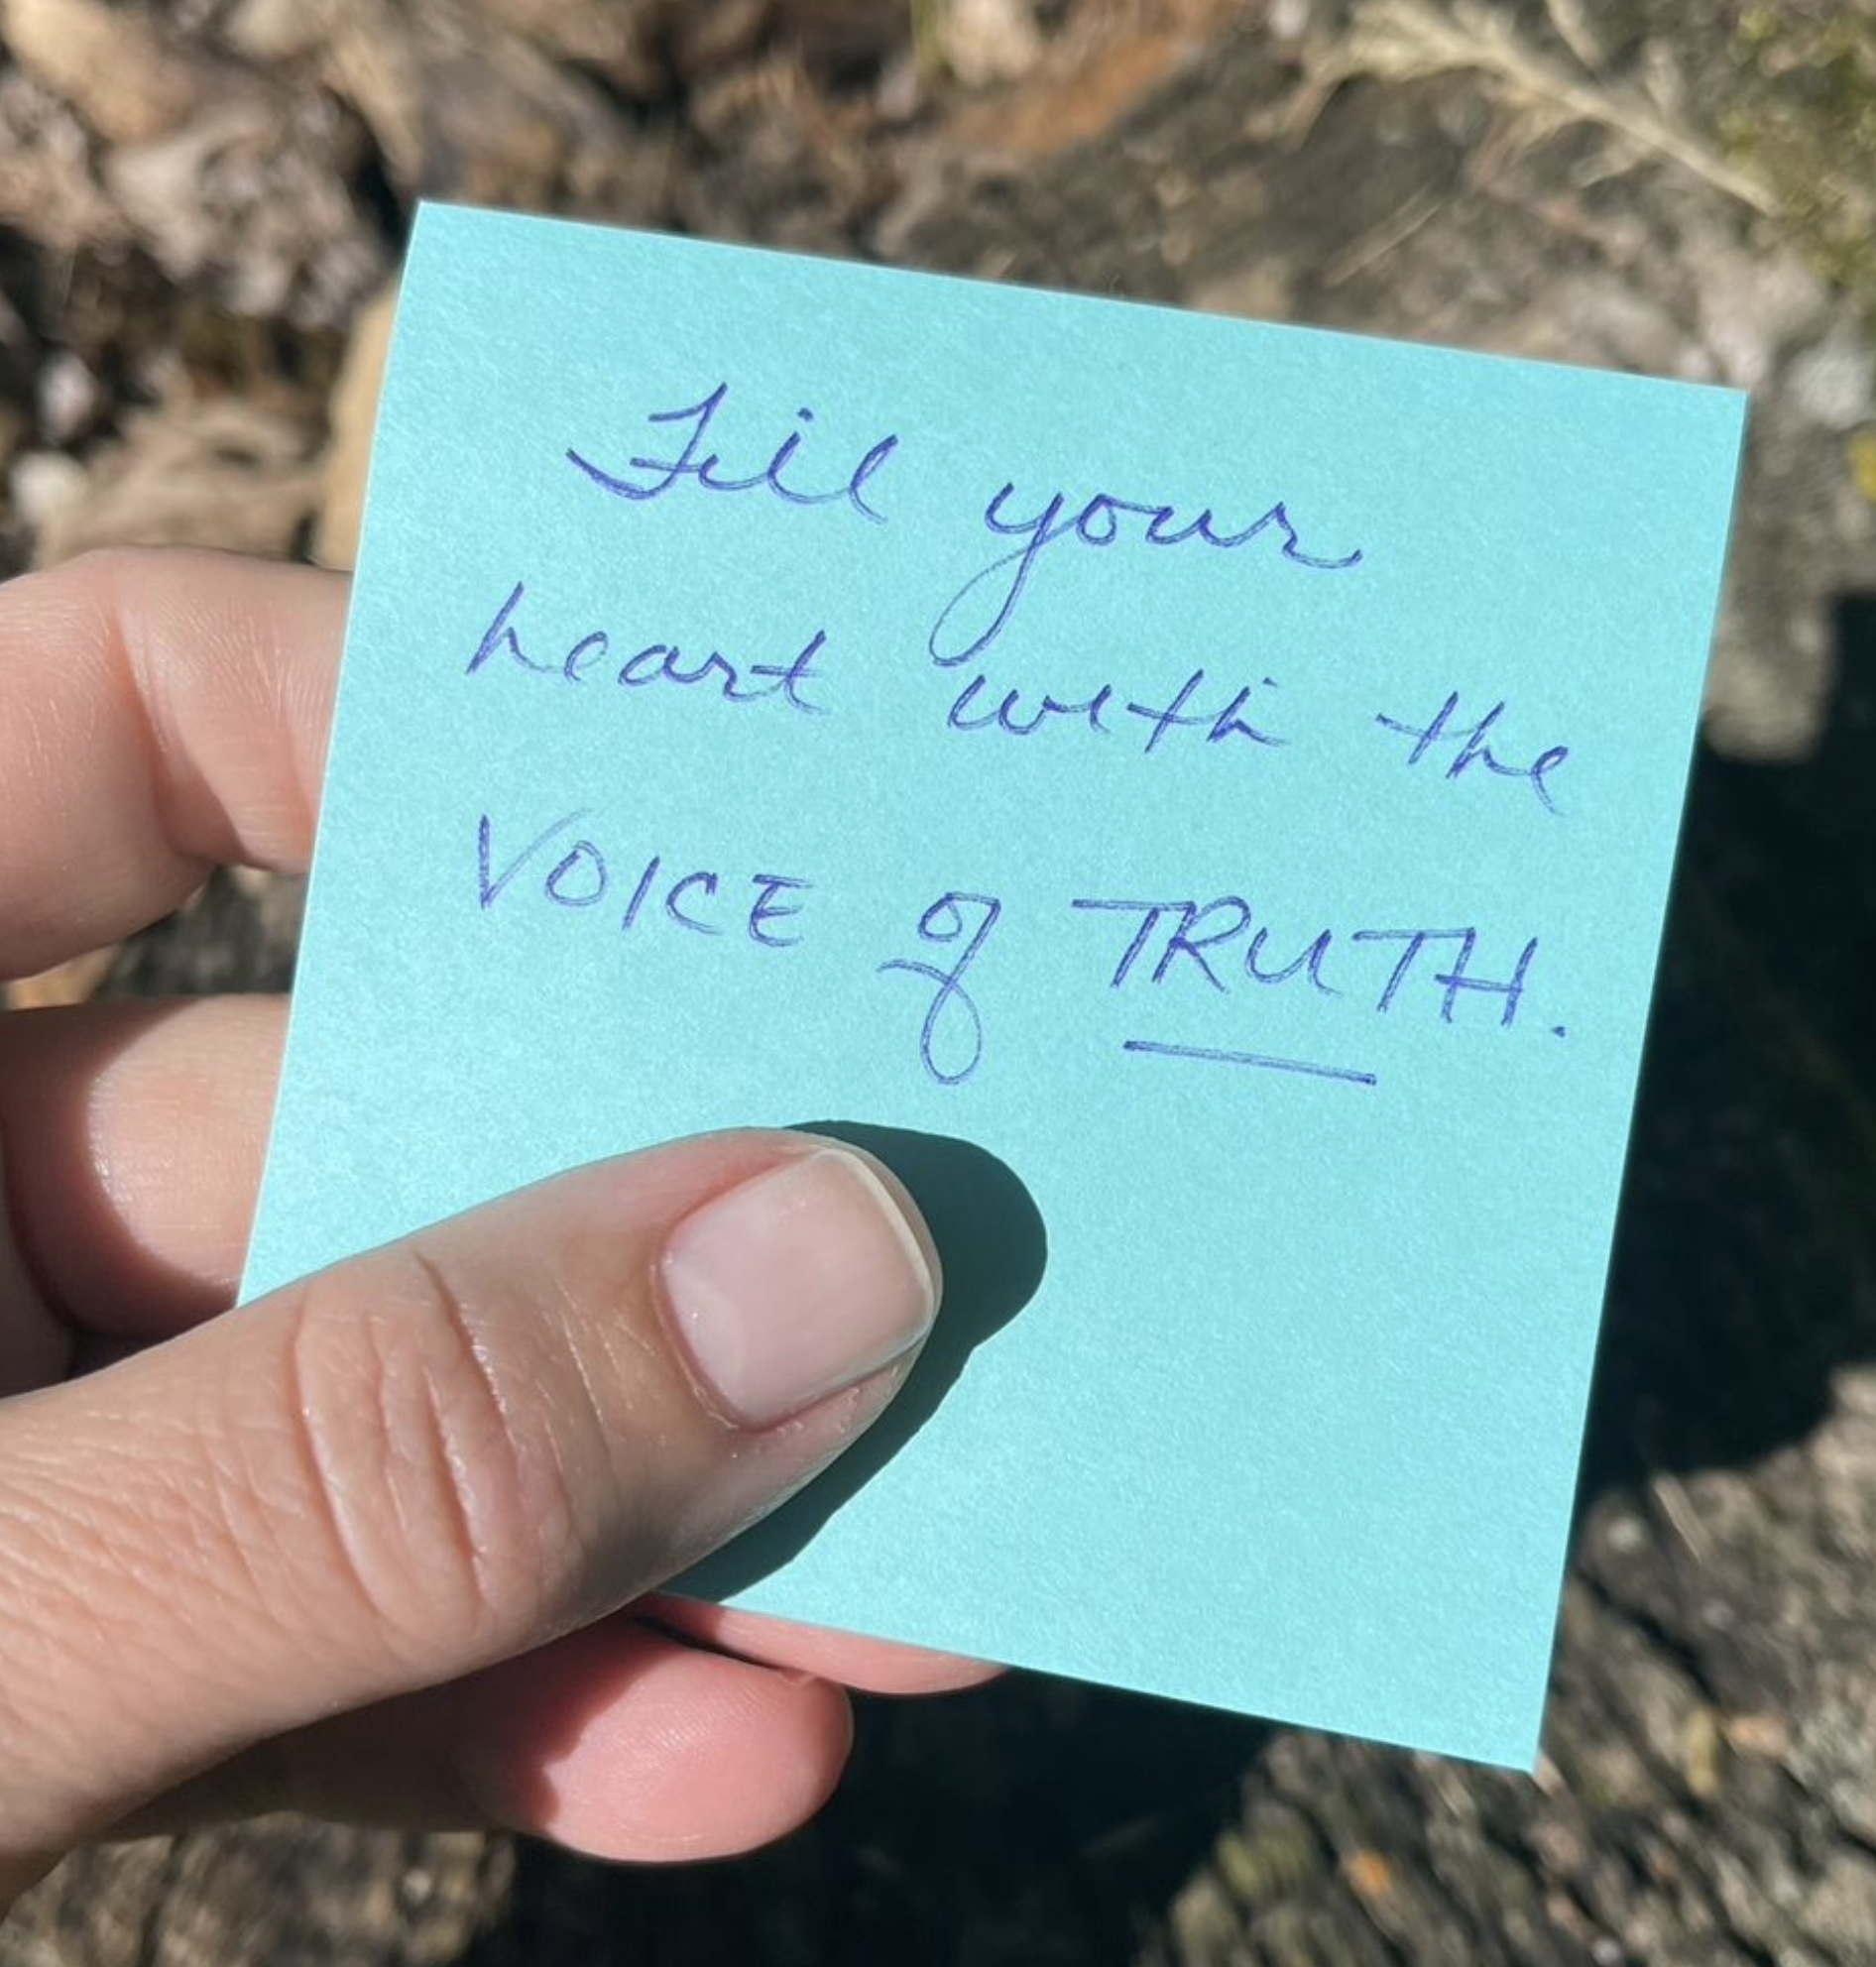 Fill your
heart with the
VOICE of TRUTH.